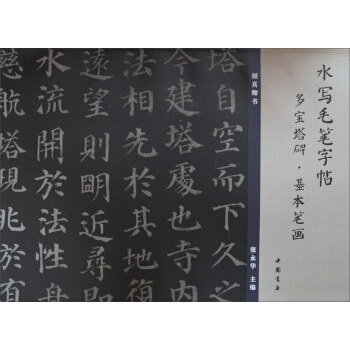 水写毛笔字帖
多宝塔碑·基本笔画
中国书店
颜真卿书
张永华 主编
塔自空而下久之
今建塔處也寺內
法相先於其地復
遠望則明近尋即
水流開於法性舟
慈航塔現兆於有